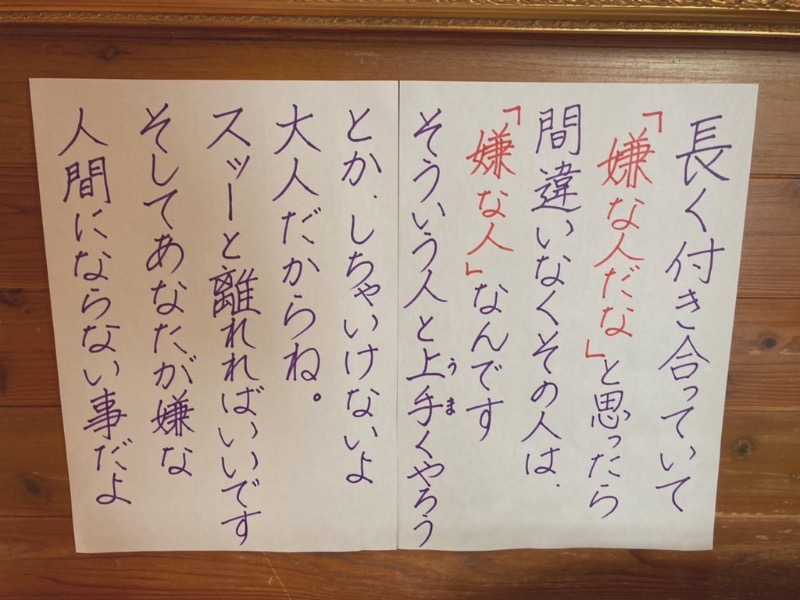 長く付き合っていて
「嫌な人だな」と思ったら
間違いなくその人は、
「嫌な人」なんです
そういう人と上手くやろう
うま
とか、しちゃいけないよ
大人だからね。
スッーと離れればいいです
そしてあなたが嫌な
人間にならない事だよ